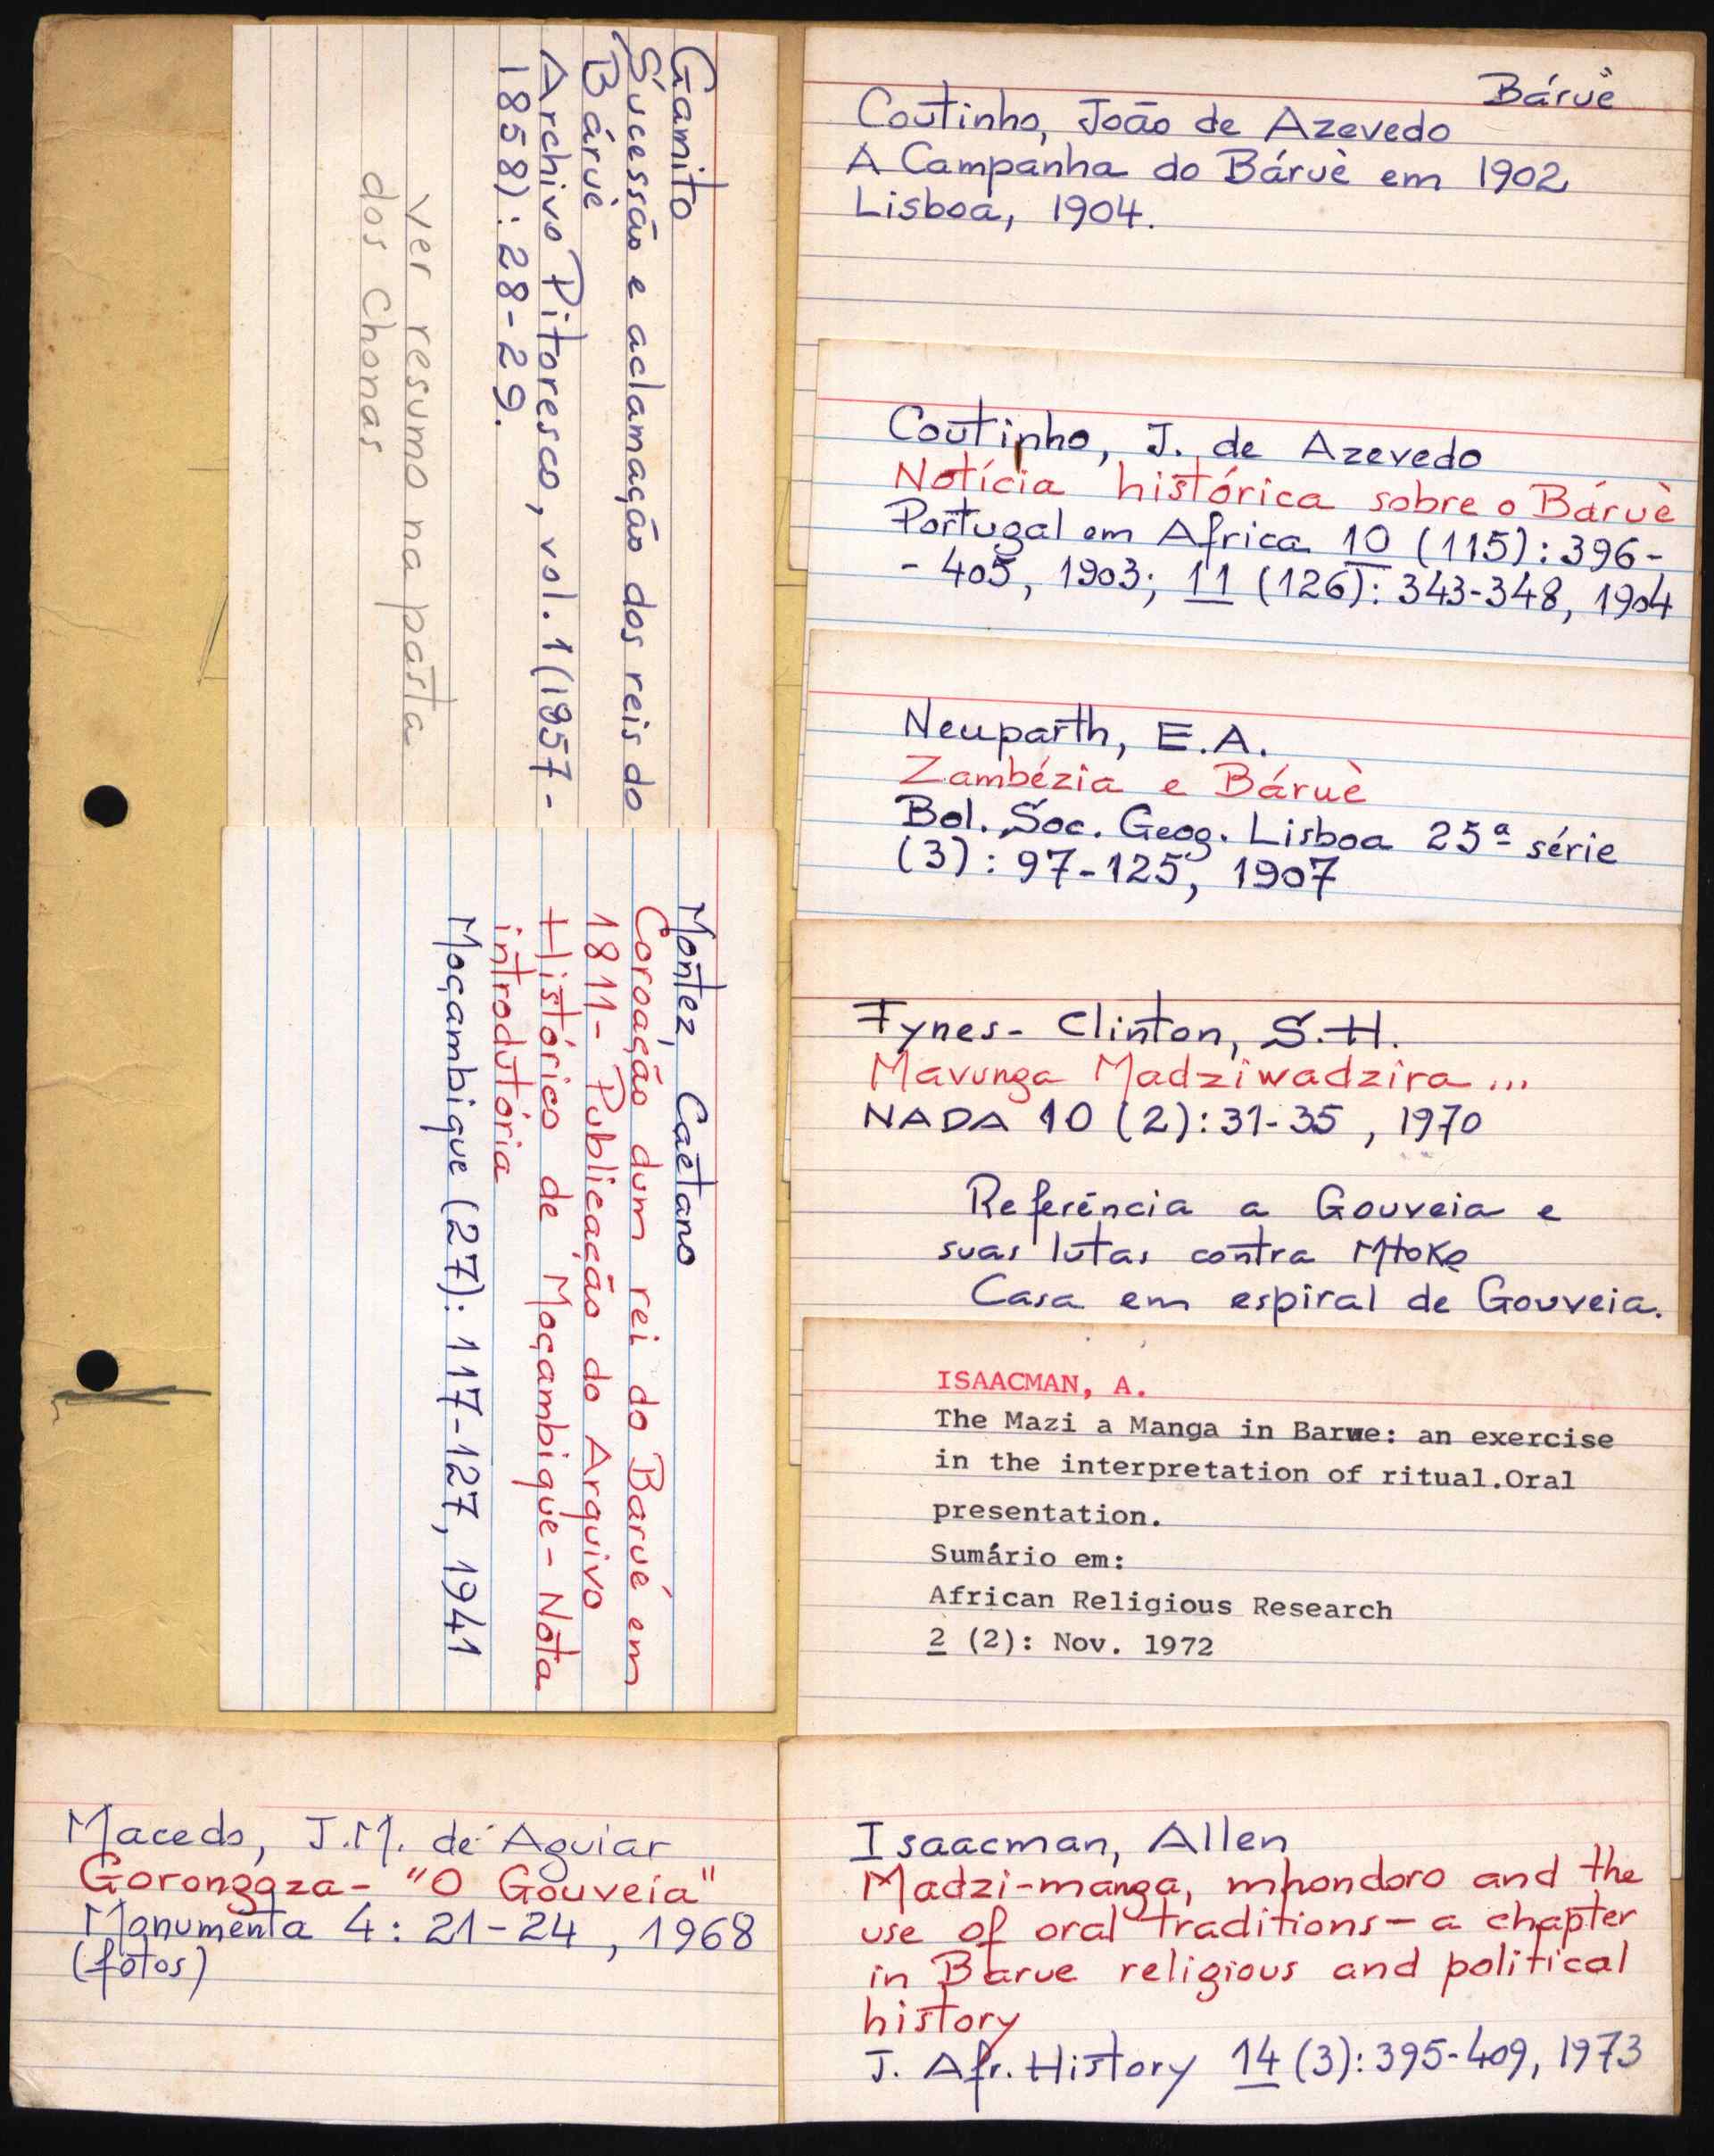 Gamito
Sucessão e aclamação dos reis do
Báruè
Archivo Pitoresco, vol. 1 (1957-
1858): 28-29.
ver resumo na pasta
dos Chonas
Montez, Caetano
Coroação dum rei do Barué em
1811- Publicação do Arquivo
Histórico de Moçambique - Nota
introdutória
Moçambique (27): 117-127, 1941
Macedo, J.M. de Aguiar
Gorongoza - "O Gouveia"
Monumenta 4: 21-24, 1968
(fotos)
Báruè
Coutinho, João de Azevedo
A Campanha do Báruè em 1902
Lisboa, 1904.
Coutinho, J. de Azevedo
Notícia histórica sobre o Báruè
Portugal em Africa 10 (115): 396-
- 405, 1903; 11 (126): 343-348, 1904
Neuparth, E.A.
Zambézia e Báruè
Bol. Soc. Geog. Lisboa 25ª série
(3): 97-125, 1907
Fynes- Clinton, S.H.
Mavunga Madziwadzira...
NADA 10 (2): 31-35, 1970
Referência a Gouveia e
suas lutas contra Mtoko
Casa em espiral de Gouveia.
ISAACMAN, A.
The Mazi a Manga in Barwe: an exercise
in the interpretation of ritual.Oral
presentation.
Sumário em:
African Religious Research
2 (2): Nov. 1972
Isaacman, Allen
Madzi-manga, mhondoro and the
use of oral traditions - a chapter
in Barue religious and political
history
J. Afr. History 14 (3): 395-409, 1973